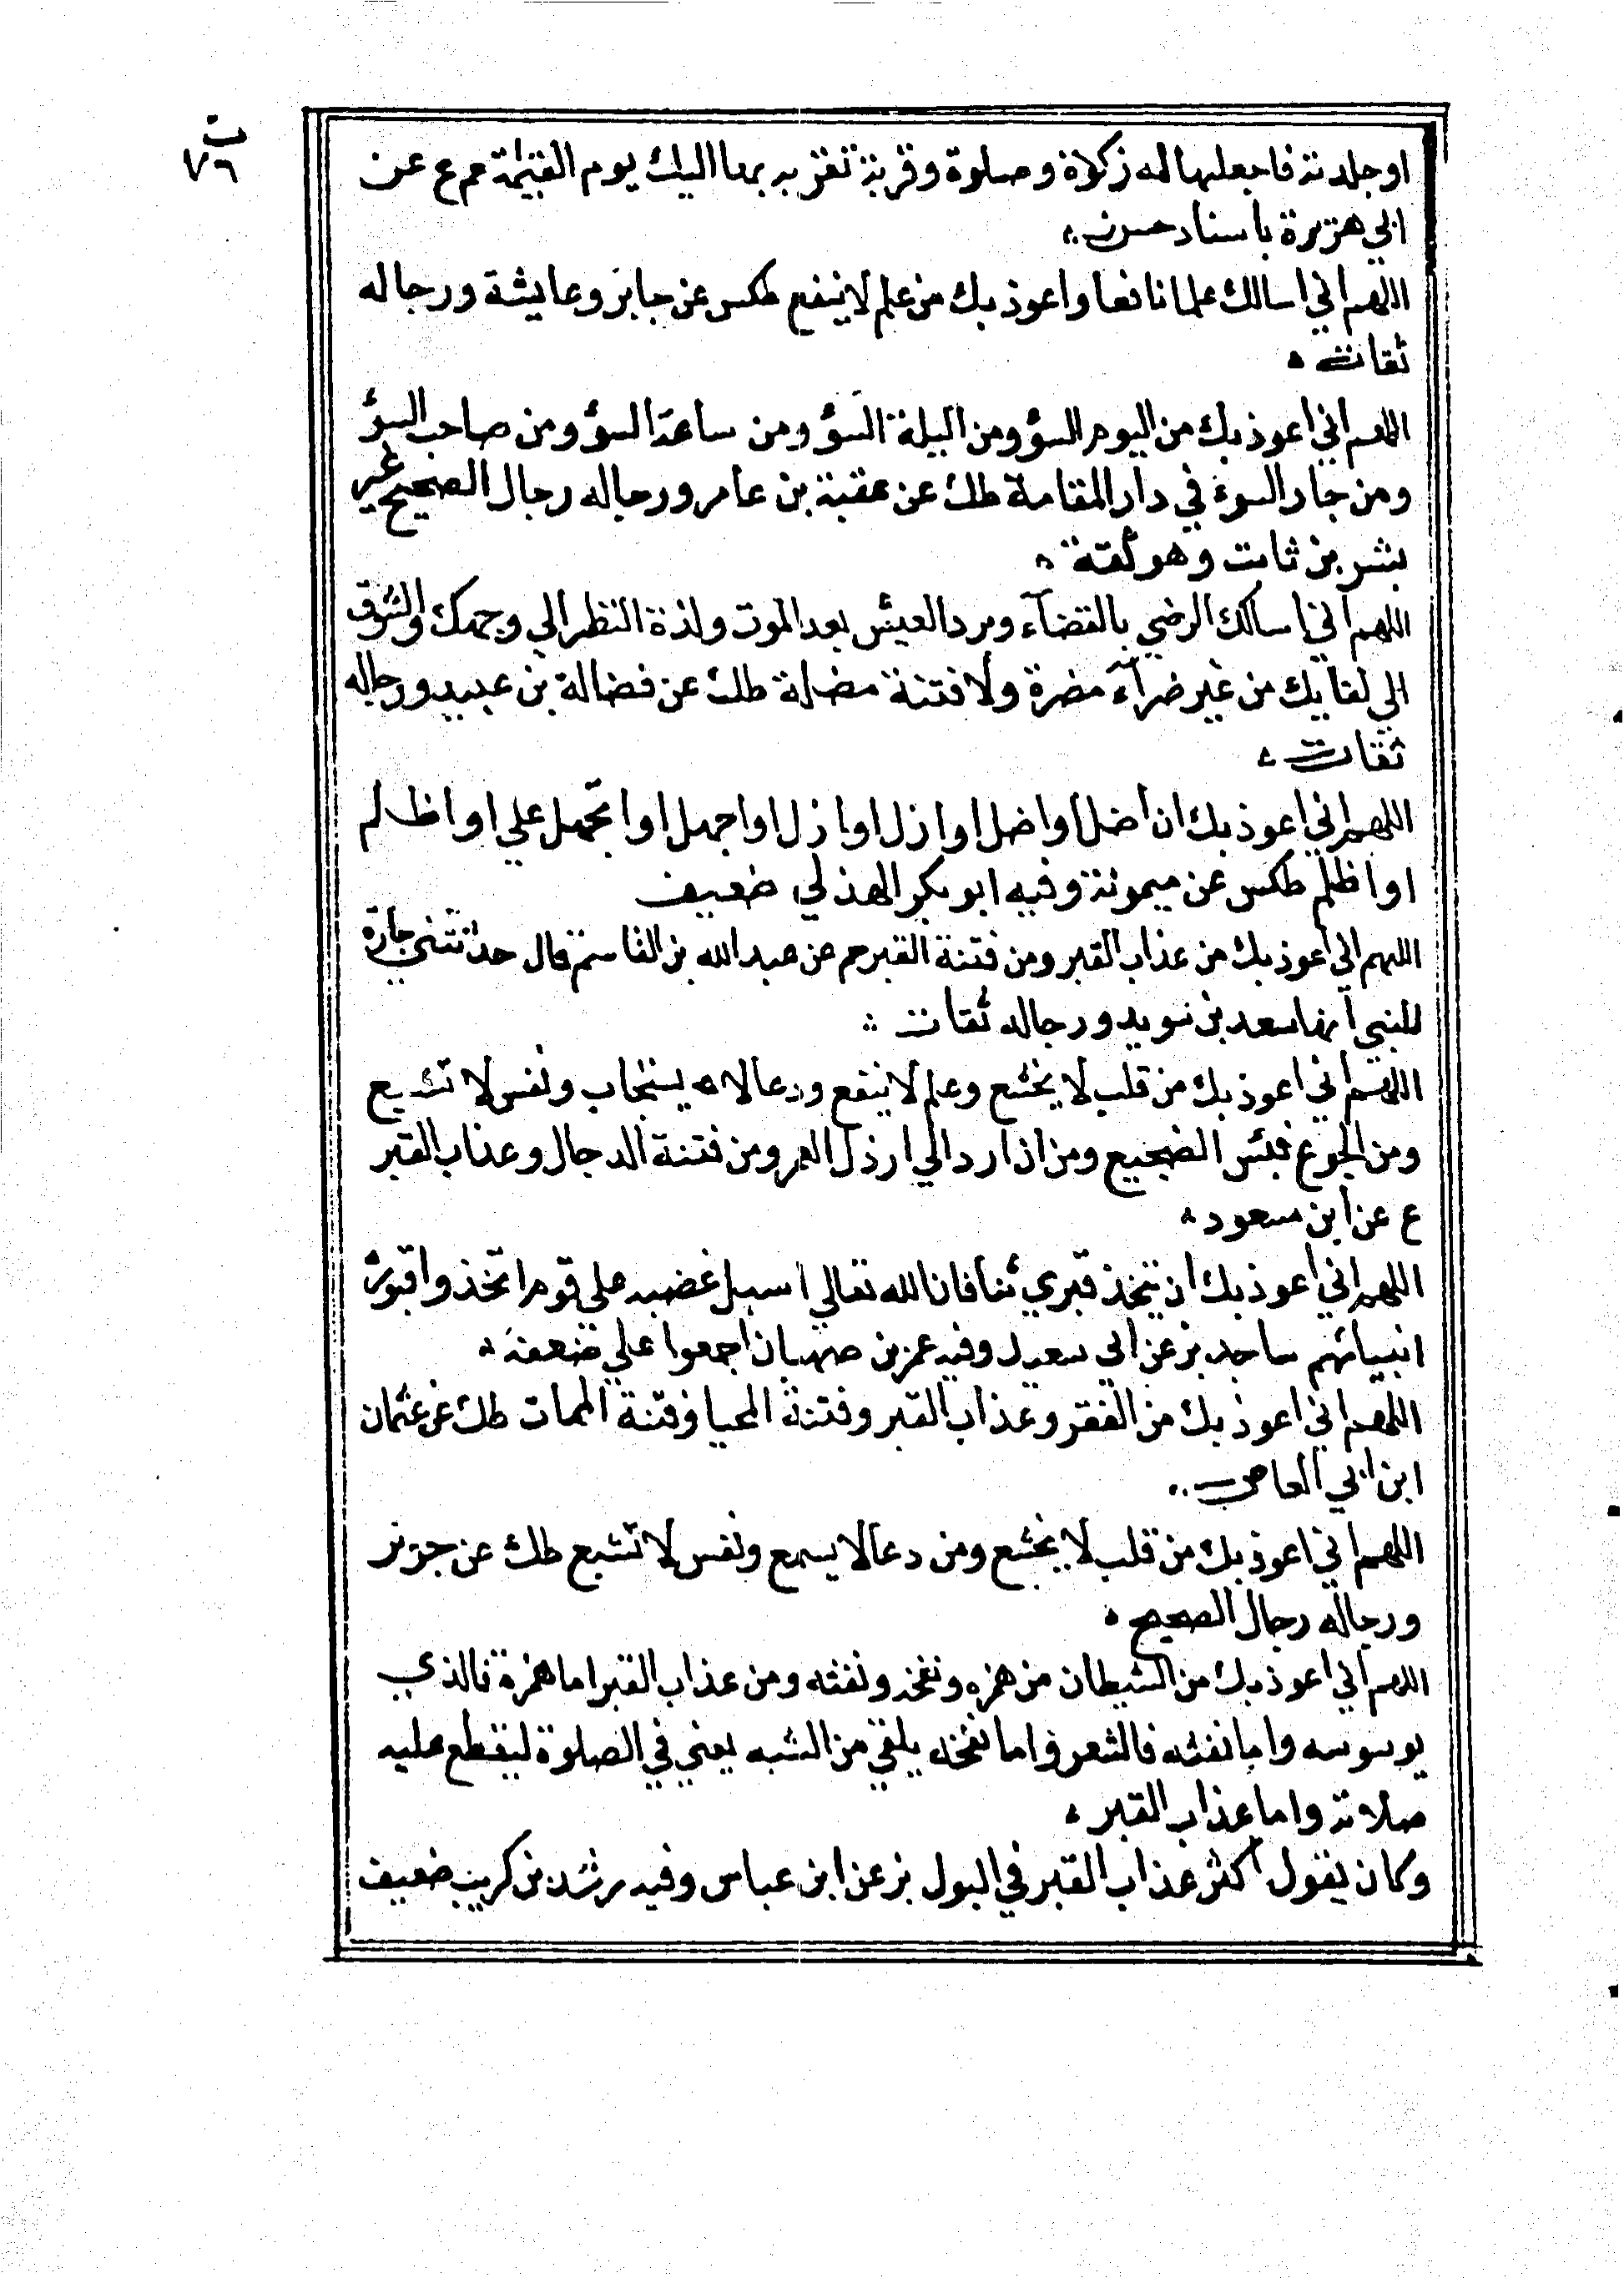 ت
٧٦
او جلدته فاجعلها له زكوة وصلوة وقربة تقربه بها اليك يوم القيمة حم ع عن
ابي هريرة باسناد حسن
اللهم اني اسالك علما نافعا واعوذ بك من علم لا ينفع طكس عن جابر وعايشة ورجاله
ثقات
اللهم اني اعوذ بك من اليوم السؤ ومن اليلة السؤ ومن ساعة السؤ ومن صاحب السؤ
ومن جار السوء في دار المقامة طك عن عقبة بن عامر ورجاله رجال الصحيح غير
بشر بن ثابت وهو ثقة
اللهم اني اسالك الرضي بالقضآء وبرد العيش بعد الموت ولذة النظر الي وجهك والشوق
الي لقايك من غير ضرآء مضرة ولا فتنة مضلة طك عن فضالة بن عبيد ورجاله
ثقات
اللهم اني اعوذ بك ان اضل او اضل او ازل او ازل او اجهل او يجهل علي او اظلم
او اظلم طكس عن ميمونة وفيه ابو بكر الهذلي ضعيف
اللهم اني اعوذ بك من عذاب القبر ومن فتنة القبر حم عن عبد الله بن القاسم قال حدثتني جارة
للنبي انها سعد بن سويد ورجاله ثقات
اللهم اني اعوذ بك من قلب لا يخشع وعلم لا ينفع ودعا لا يستجاب ونفس لا تشبع
ومن الجوع فبئس الضجيع ومن ان ارد الي ارذل العمر ومن فتنة الدجال وعذاب القبر
ع عن ابن مسعود
اللهم اني اعوذ بك ان يتخذ قبري ثنا فان الله تعالي اسبل غضبه علي قوم اتخذوا قبور
انبيائهم ساجد بز عن ابي سعيد وفيه عمر بن صهبان اجمعوا علي ضعفه
اللهم اني اعوذ بك من الفقر وعذاب القبر وفتنة المحيا وفتنة الممات طك عن عثمان
ابن ابي العاص
اللهم اني اعوذ بك من قلب لا يخشع ومن دعا لا يسمع ونفس لا تشبع طك عن جرير
ورجاله رجال الصحيح
اللهم اني اعوذ بك من الشيطان من همزه ونفخه ونفثه ومن عذاب القبر اما همزة فالذي
يوسوسه واما نفثه فالشعر واما نفخه يلقي من الشبه يعني في الصلوة ليقطع عليه
صلاته واما عذاب القبر
وكان يقول اكثر عذاب القبر في البول بز عن ابن عباس وفيه رشد بن كريب ضعيف